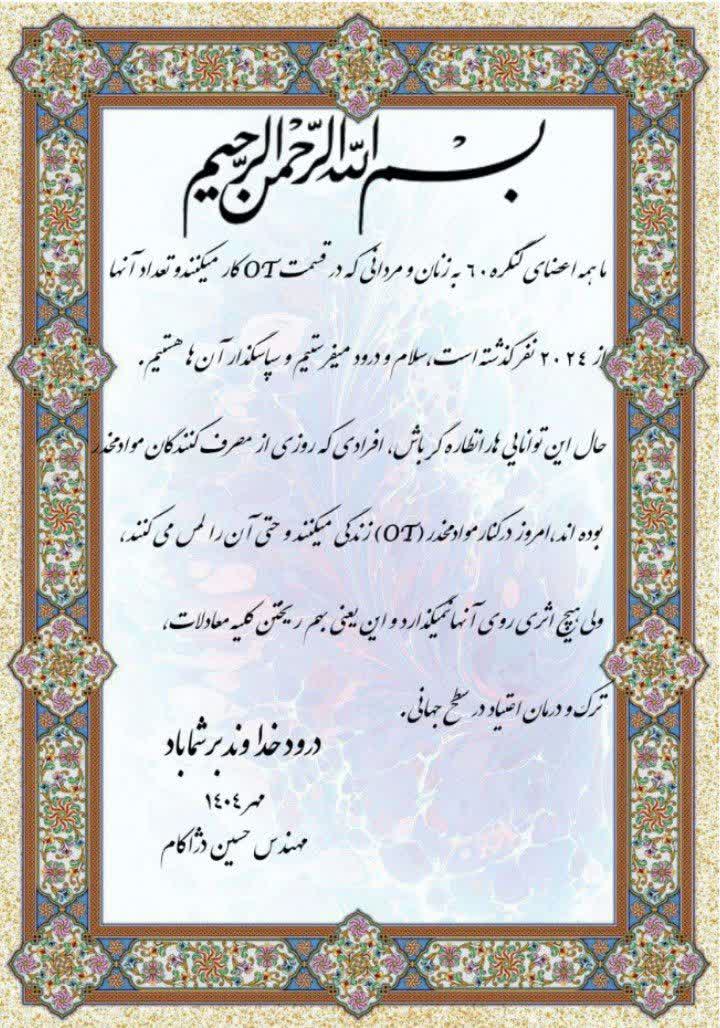 بسم الله الرحمن الرحیم
ما همه اعضای کنگره ٦٠ به زنان و مردانی که در قسمت OT کار میکنندو تعداد آنها
از ٢٠٢٤ نفر گذشته است، سلام و درود میفرستیم و سپاسگذار آن ها هستیم.
حال این توانایی هارا نظاره گر باش، افرادی که روزی از مصرف کنندگان موادمخدر
بوده اند، امروز درکنار موادمخدر (OT) زندگی میکنند و حتی آن را لمس می کنند،
ولی هیچ اثری روی آنها نمیگذارد و این یعنی بهم ریختن کلیه معادلات،
ترک و درمان اعتیاد در سطح جهانی.
درود خداوند بر شما باد
مهر ١٤٠٤
مهندس حسین دژاکام